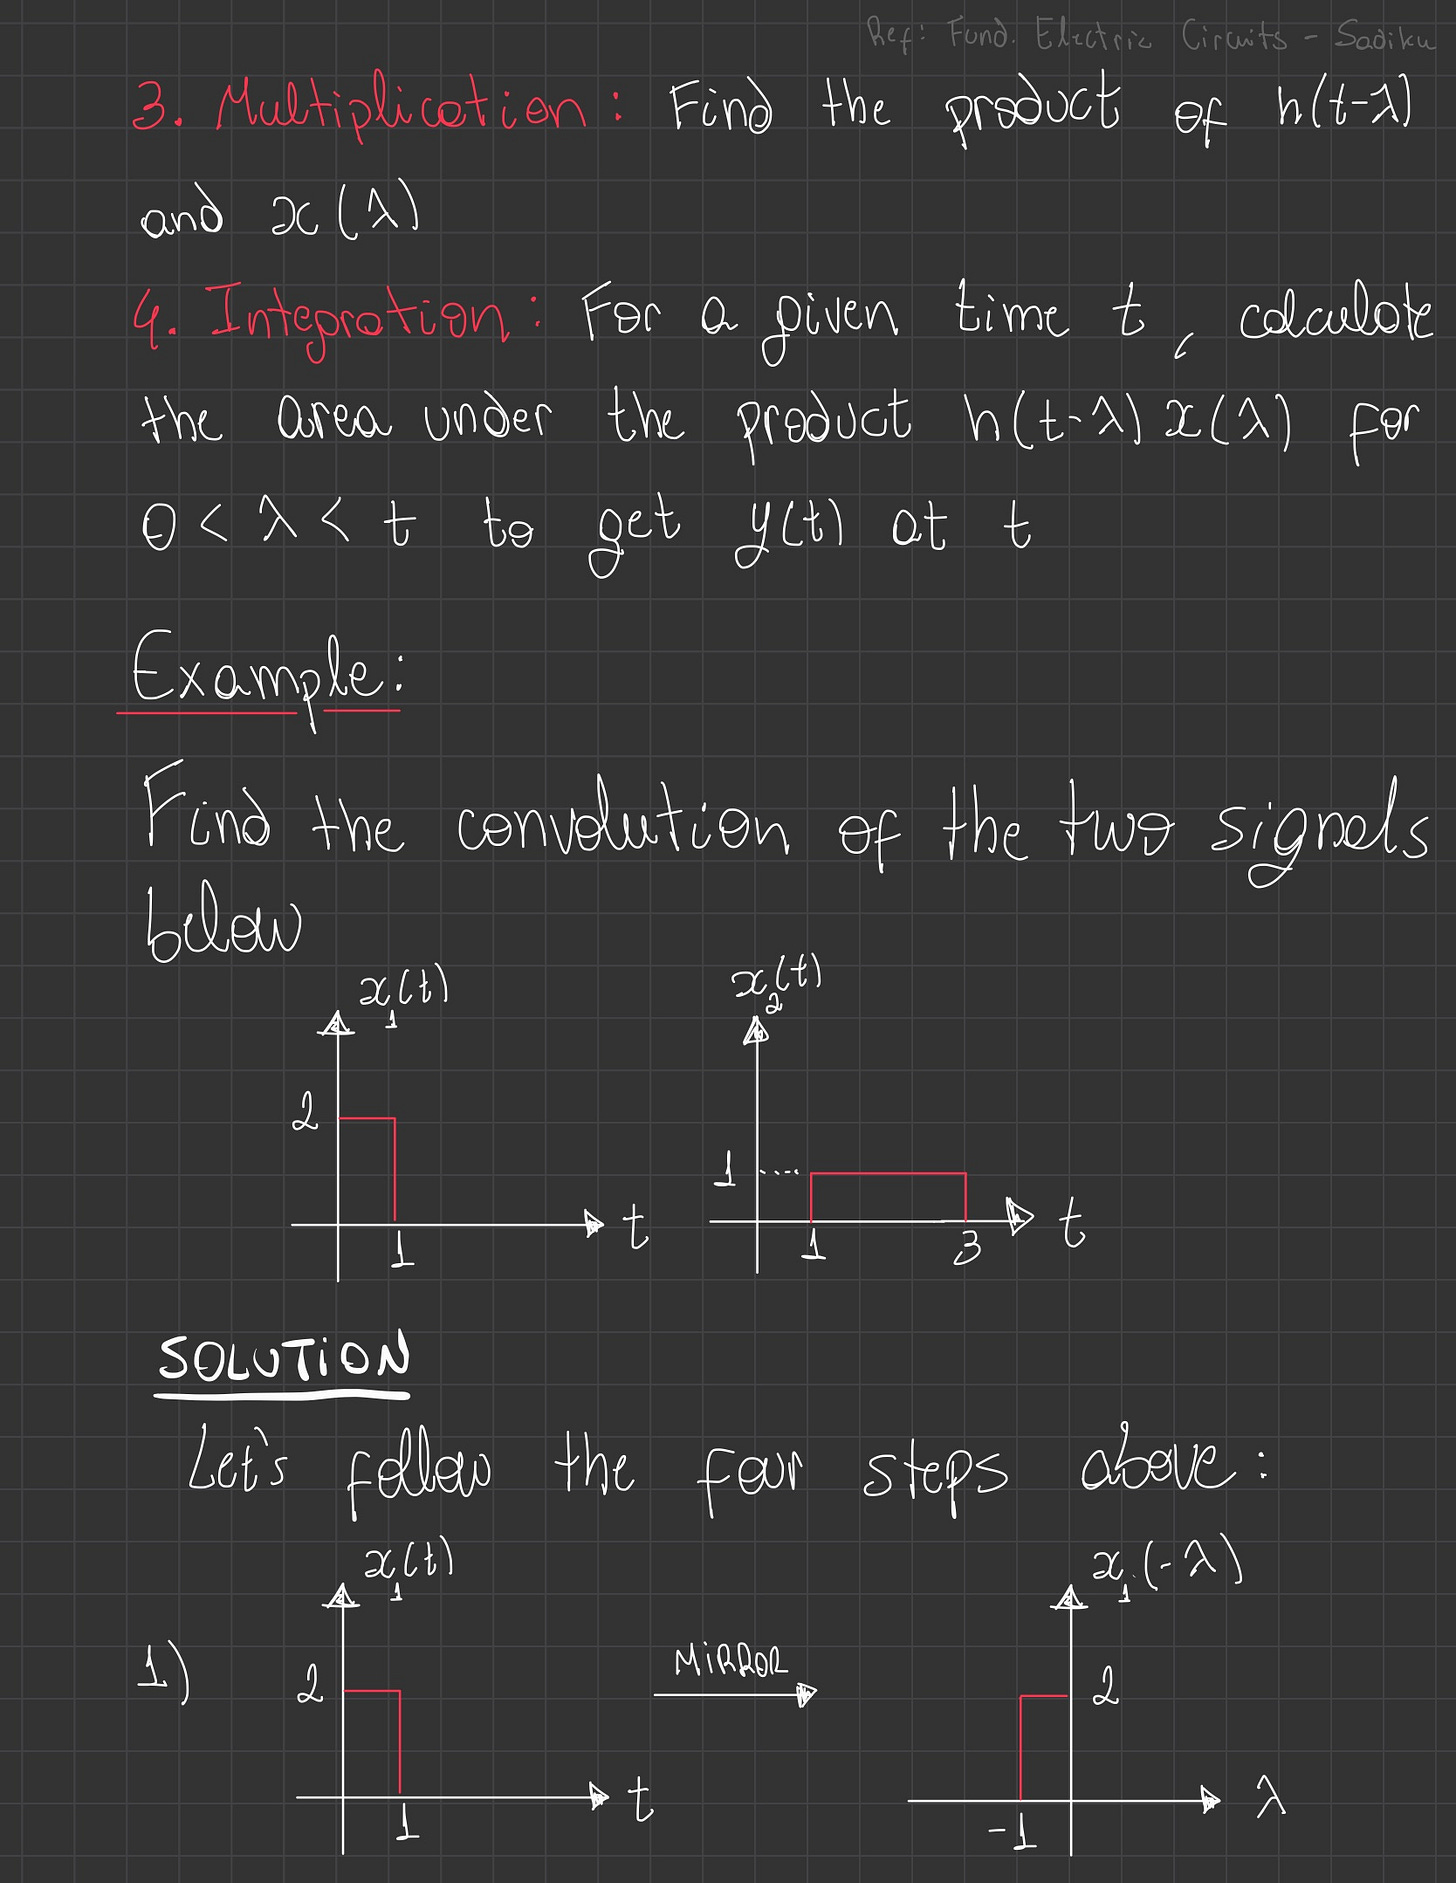 Ref: Fund. Electric Circuits - Sadiku
3. Multiplication: Find the product of h(t-λ)
and x(λ)
4. Integration: For a given time t, calculate
the area under the product h(t-λ) x(λ) for
0 < λ < t to get y(t) at t
Example:
Find the convolution of the two signals
below
x₁(t) x₂(t)
2 1
1 t 1 3 t
SOLUTION
Let's follow the four steps above:
x₁(t) x₁(-λ)
1) 2 MIRROR 2
1 t -1 λ